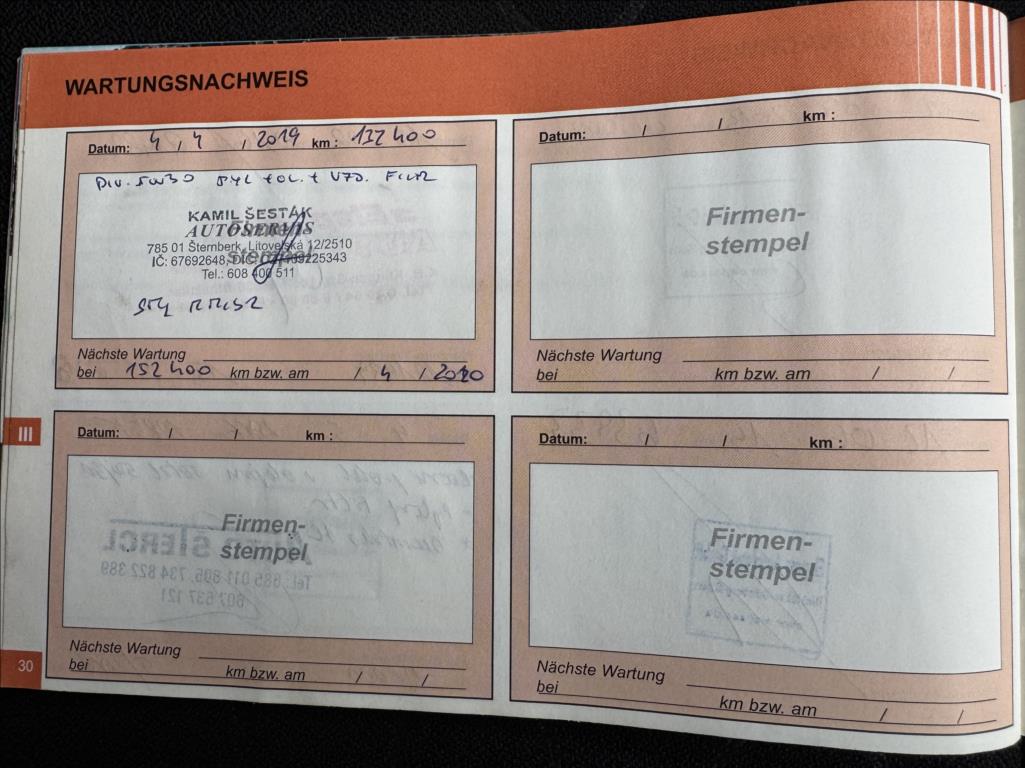 WARTUNGSNACHWEIS
Datum: 4 / 4 / 2019 km : 132 400
DIV. 5W30 FYL + OL. + VZD. FILTR
KAMIL ŠESTÁK
AUTOSERVIS
785 01 Šternberk, Litovelská 12/2510
IČ: 67692648, DIČ:
Tel.: 608 400 511
Nächste Wartung
bei 152 400 km bzw. am / 4 / 2020
Datum: / / km :
Firmen-
stempel
Nächste Wartung
bei km bzw. am / /
III
Datum: / / km :
Firmen-
stempel
Nächste Wartung
bei km bzw. am / /
Datum: / / km :
Firmen-
stempel
Nächste Wartung
bei km bzw. am / /
30